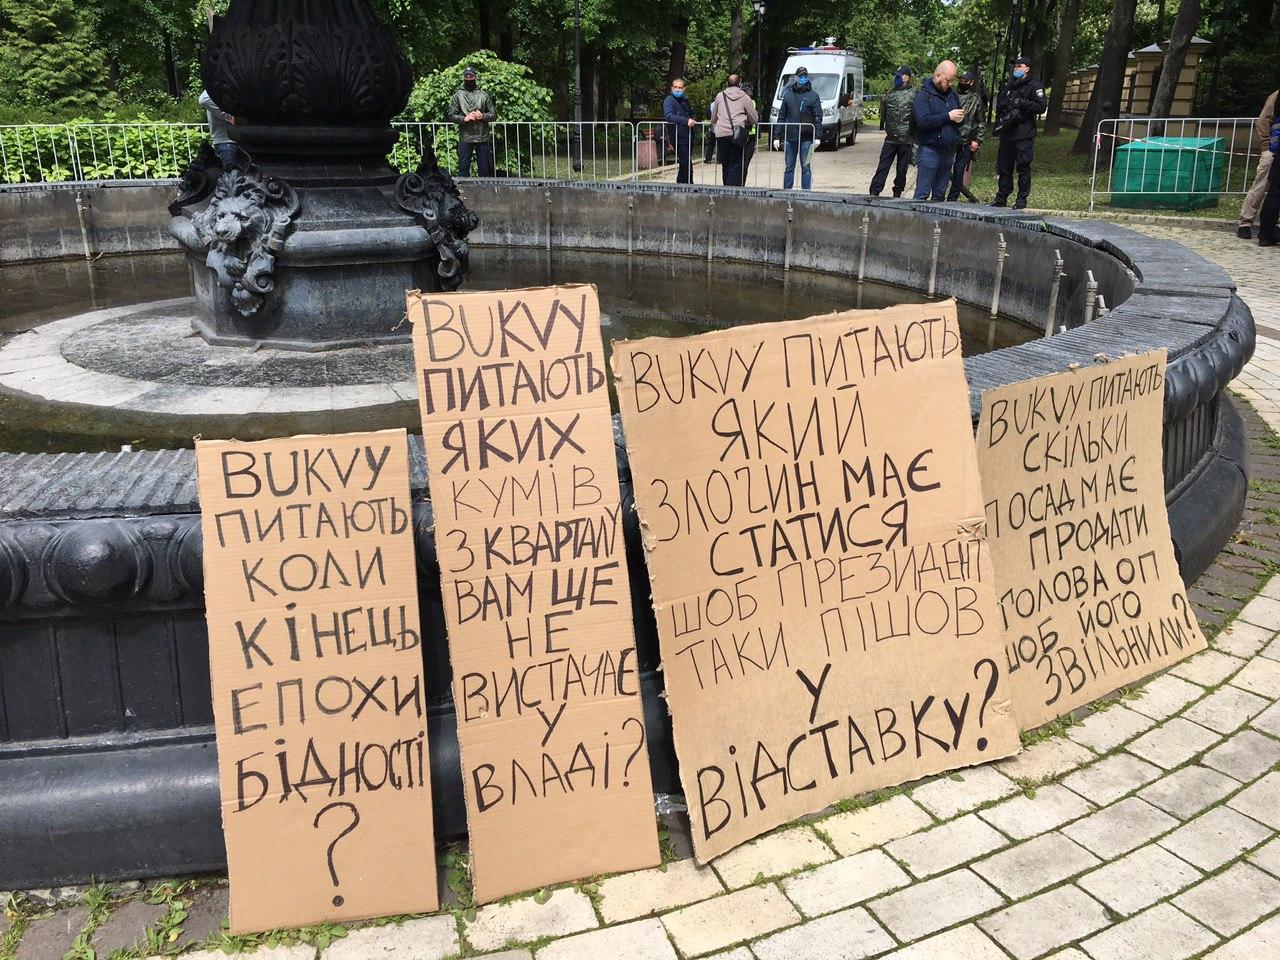 BUKVY
ПИТАЮТЬ
КОЛИ
КІНЕЦЬ
ЕПОХИ
БІДНОСТІ
?
BUKVY
ПИТАЮТЬ
ЯКИХ
КУМІВ
З КВАРТАЛУ
ВАМ ЩЕ
НЕ
ВИСТАЧАЄ
У
ВЛАДІ?
BUKVY ПИТАЮТЬ
ЯКИЙ
ЗЛОЧИН МАЄ
СТАТИСЯ
ЩОБ ПРЕЗИДЕНТ
ТАКИ ПІШОВ
У
ВІДСТАВКУ?
BUKVY ПИТАЮТЬ
СКІЛЬКИ
ПОСАД МАЄ
ПРОДАТИ
ГОЛОВА ОП
ЩОБ ЙОГО
ЗВІЛЬНИЛИ?